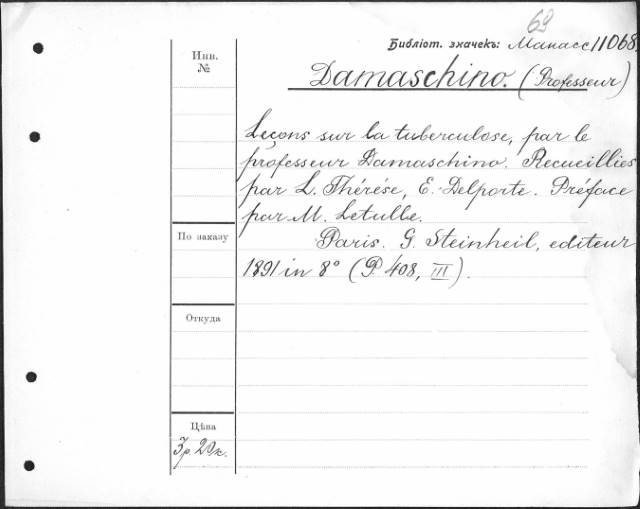 69
Библіот. значекъ: Манасс 11068
Инв. №
Damaschino. (Professeur)
Leçons sur la tuberculose, par le
professeur Damaschino. Recueillies
par L. Thérése, E. Delporte. Préface
par M. Letulle.
По заказу
Paris. G. Steinheil, editeur
1891 in 8° (P. 408, III).
Откуда
Цѣна
3 р. 20 к.